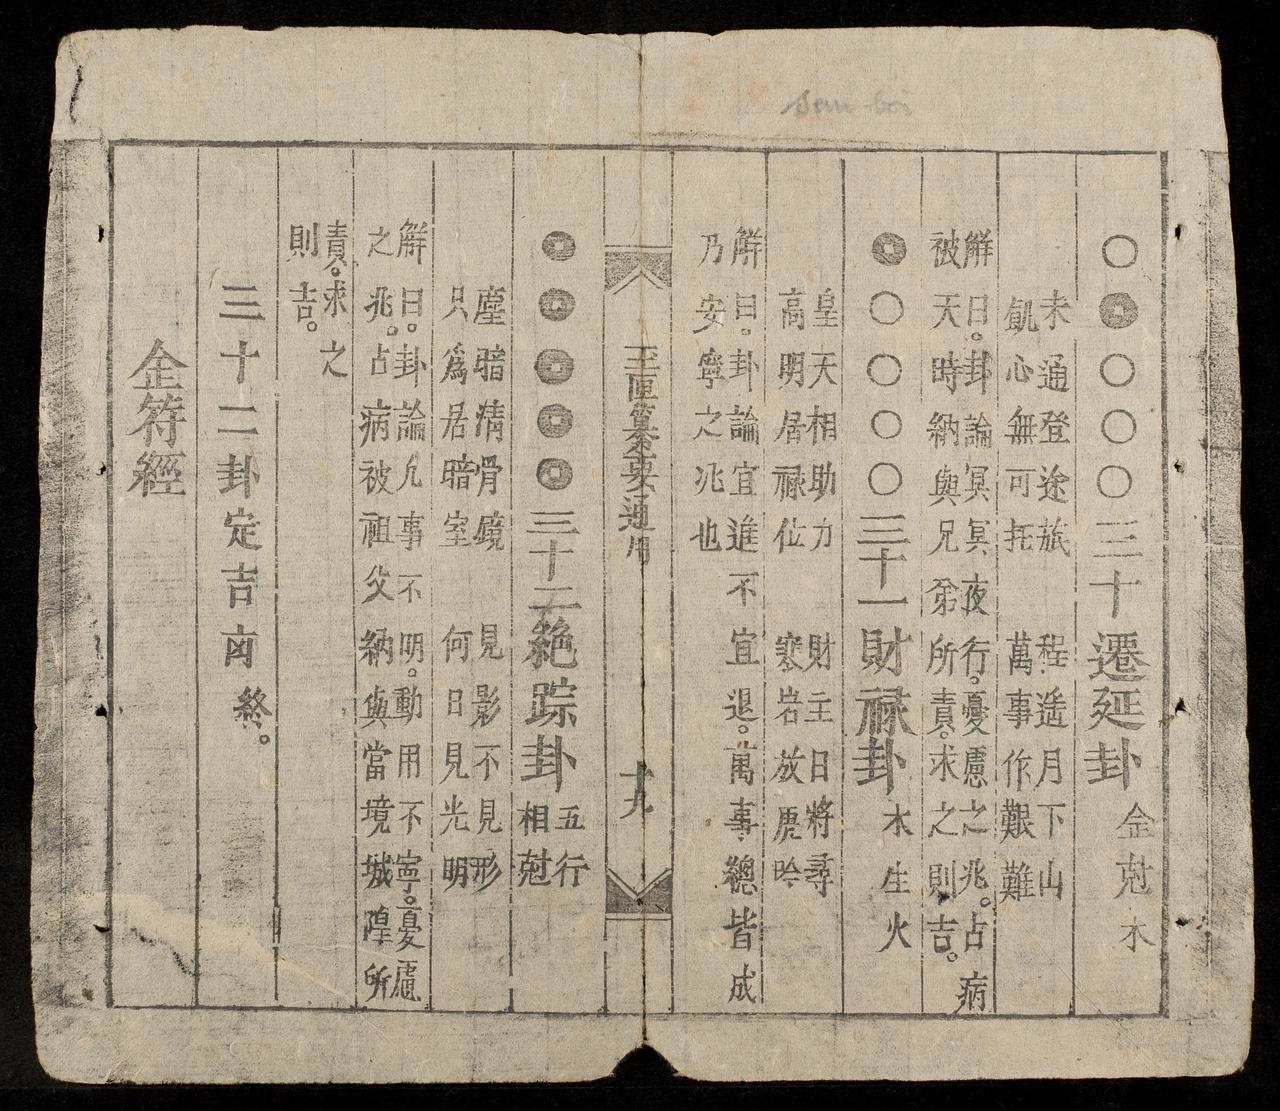 ○●○○○三十遷延卦 金尅木
未通登途旅 程遥月下山
飢心無可托 萬事作艱難
解曰。卦論冥冥夜行。憂慮之兆。占病
被天時納與兄弟所責。求之則吉。
●○○○○三十一財禄卦 木生火
皇天相助力 財主日將尋
高明居禄位 寒岩放
解曰。卦論宜進不宜退。萬事總皆成
乃安寧之兆也
玉匣纂要通用 十九
●●●●●三十二絶踪卦 五行相尅
塵暗清骨鏡 見影不見形
只爲居暗室 何日見光明
解曰。卦論凡事不明。動用不寧。憂慮
之兆。占病被祖父納與當境城隍所
責。求之
則吉。
三十二卦定吉凶 終。
金符經
Sem boi